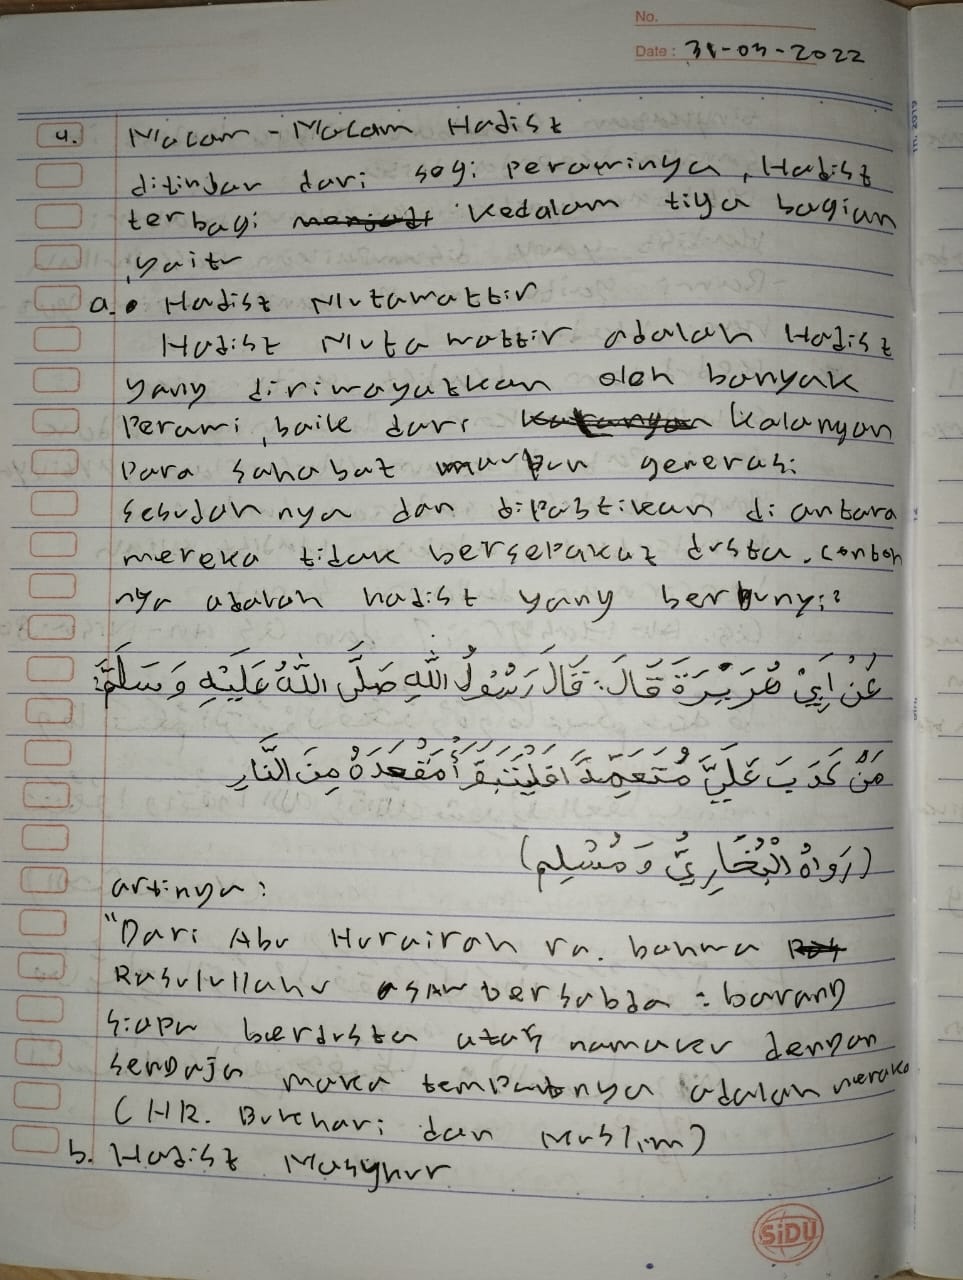 No.
Date : 31-03-2022
4. Macam - Macam Hadist
ditinjar dari segi perawinya, Hadist
terbagi kedalam tiga bagian
, yaitu
a. • Hadist Mutawattir
Hadist Mutawattir adalah Hadist
yang diriwayatkan oleh banyak
Perawi, baik dari Kalangan
Para sahabat maupun generasi
sesudah nya dan dipastikan di antara
mereka tidak bersepakat dusta. contoh
nya adalah hadist yang berbunyi:
عَنْ أَبِيْ هُرَيْرَةَ قَالَ: قَالَ رَسُوْلُ اللّٰهِ صَلَّى اللّٰهُ عَلَيْهِ وَسَلَّمَ:
مَنْ كَدَبَ عَلَيَّ مُتَعَمِّدًا فَلْيَتَبَوَّأْ مَقْعَدَهُ مِنَ النَّارِ
(رَوَاهُ الْبُخَارِيُّ وَمُسْلِم)
artinya :
"Dari Abu Hurairah ra. bahwa
Rasulullahu saw bersabda : barang
siapa berdusta atas namaku dengan
sengaja maka tempatnya adalah neraka
(HR. Bukhari dan Muslim)
b. Hadist Masyhur
SiDU